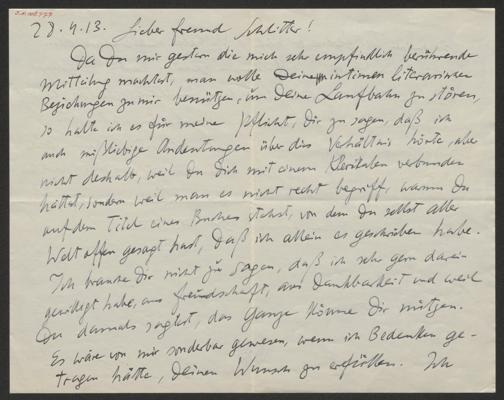 28.4.13. Lieber Freund Schlitter!
Da Du mir gestern die mich sehr empfindlich berührende
Mitteilung machtest, man wolle Deine intimen literarischen
Beziehungen zu mir benützen, um Deine Laufbahn zu stören,
so halte ich es für meine Pflicht, Dir zu sagen, daß ich
auch mißliebige Andeutungen über dies Verhältnis hörte, aber
nicht deshalb, weil Du Dich mit einem Klerikalen verbunden
hättest, sondern weil man es nicht recht begriff, warum Du
auf dem Titel eines Buches stehst, von dem Du selbst aller
Welt offen gesagt hast, daß ich allein es geschrieben habe.
Ich brauche Dir nicht zu sagen, daß ich sehr gern darein
gewilligt habe, aus Freundschaft, aus Dankbarkeit und weil
Du damals sagtest, das Ganze könne Dir nützen.
Es wäre von mir sonderbar gewesen, wenn ich Bedenken ge-
tragen hätte, Deinen Wunsch zu erfüllen. Ich